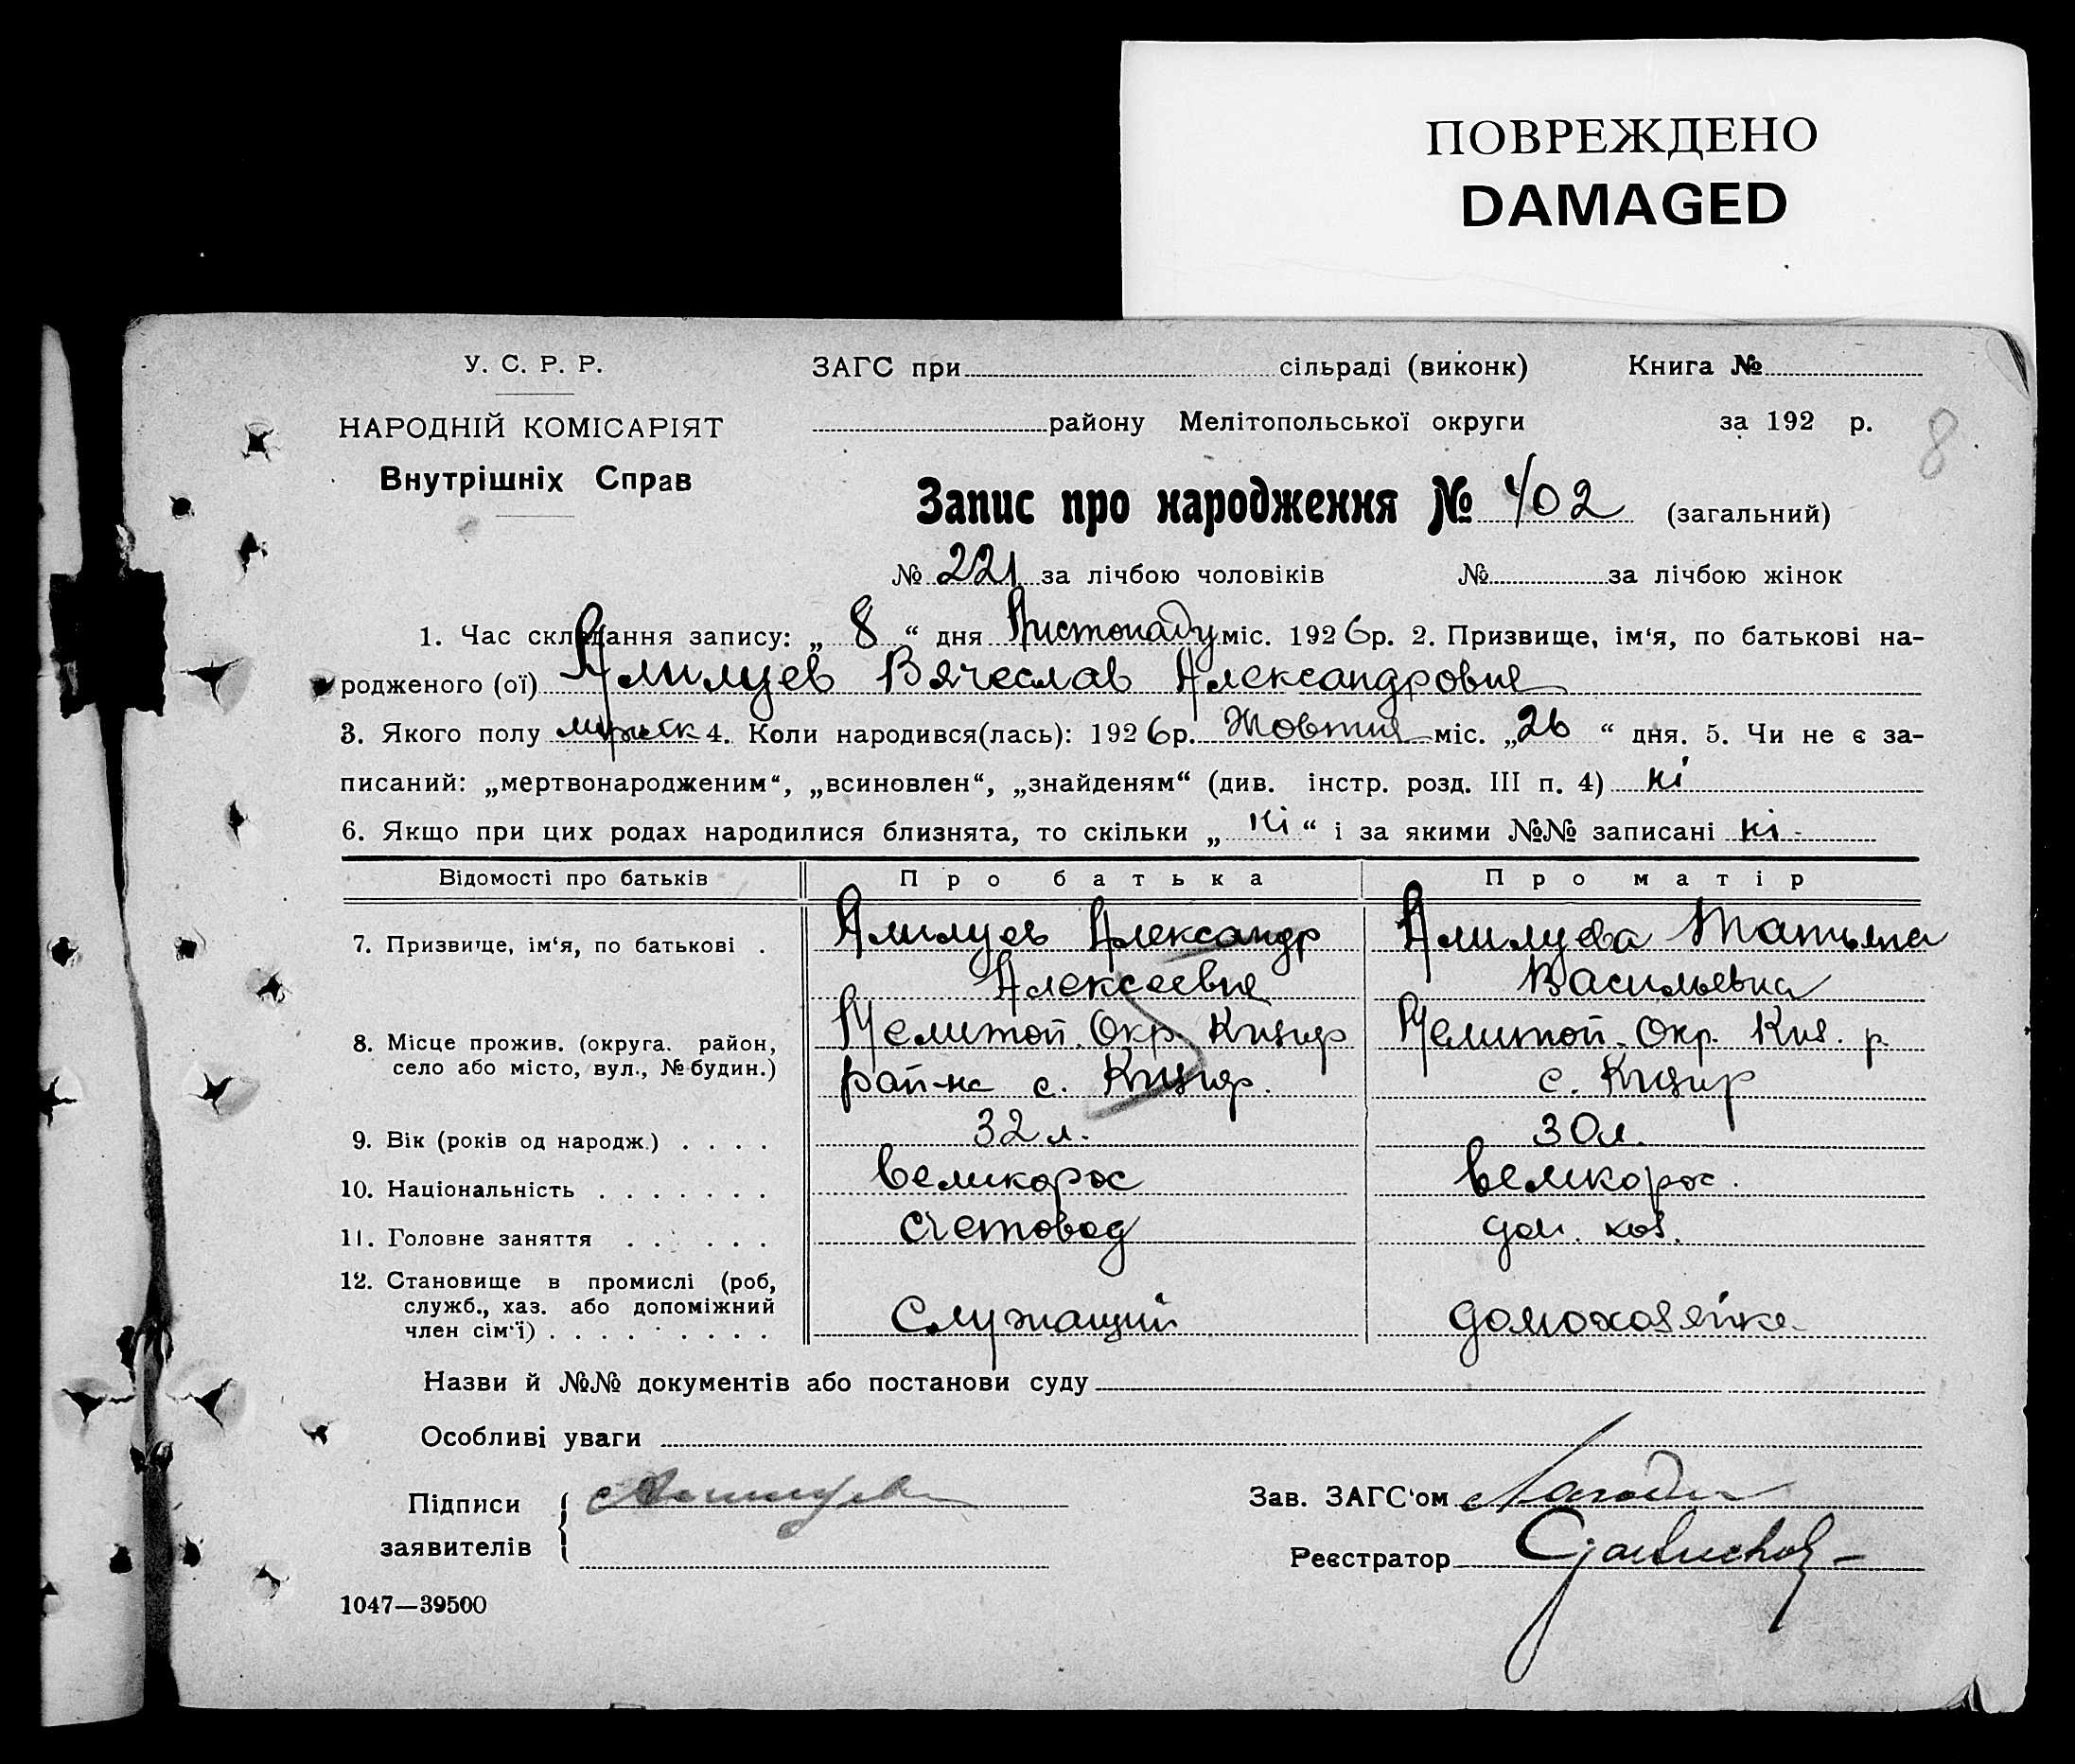 ПОВРЕЖДЕНО
DAMAGED
У. С. Р. Р.
НАРОДНІЙ КОМІСАРІЯТ
Внутрішніх Справ
ЗАГС при сільраді (виконк) Книга №
району Мелітопольської округи за 192 р.
8
Запис про народження № 402 (загальний)
№ 221 за лічбою чоловіків № за лічбою жінок
1. Час складання запису: „ 8 “ дня Листопаду міс. 1926 р. 2. Призвище, ім‘я, по батькові на-
родженого (ої) Алилуев Вячеслав Александрович
3. Якого полу мужеск 4. Коли народився(лась): 1926 р. Жовтня міс. „26 “ дня. 5. Чи не є за-
писаний: „мертвонародженим“, „всиновлен“, „знайденям“ (див. інстр. розд. III п. 4) ні
6. Якщо при цих родах народилися близнята, то скільки „ ні “ і за якими №№ записані ні -
Відомості про батьків Про батька Про матір
7. Призвище, ім‘я, по батькові . Алилуев Александр Алилуева Татьяна
Алексеевич Васильевна
8. Місце прожив. (округа. район, Мелитоп. Окр. Кизияр Мелитоп. Окр. Киз. р.
село або місто, вул., № будин.) рай-на с. Кизияр. с. Кизияр
9. Вік (років од народж.) . . . . 32 л. 30 л.
10. Національність . . . . . . . великорос великорос.
11. Головне заняття . . . . . . счетовод дом. хоз.
12. Становище в промислі (роб,
служб., хаз. або допоміжний Служащий домохозяйка
член сім‘ї) . . . . . . . . .
Назви й №№ документів або постанови суду
Особливі уваги
Підписи Алилуев Зав. ЗАГС‘ом
заявителів Реєстратор
1047—39500